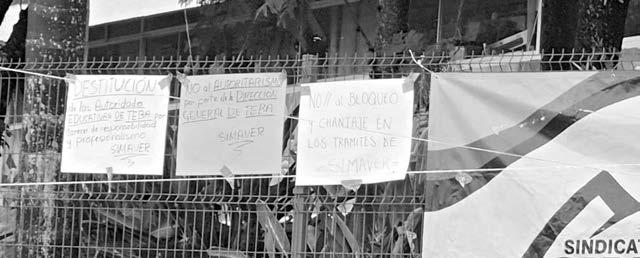 DESTITUCIÓN
de las Autoridades
EDUCATIVAS DE TEBA por
carecer de responsabilidad
y profesionalismo
SIMAVER
NO al AUTORITARISMO
por parte de la DIRECCIÓN
GENERAL DE TEBA
SIMAVER
NO!! al BLOQUEO
y CHANTAJE EN
LOS TRAMITES DE
-SIMAVER=
SINDICAT